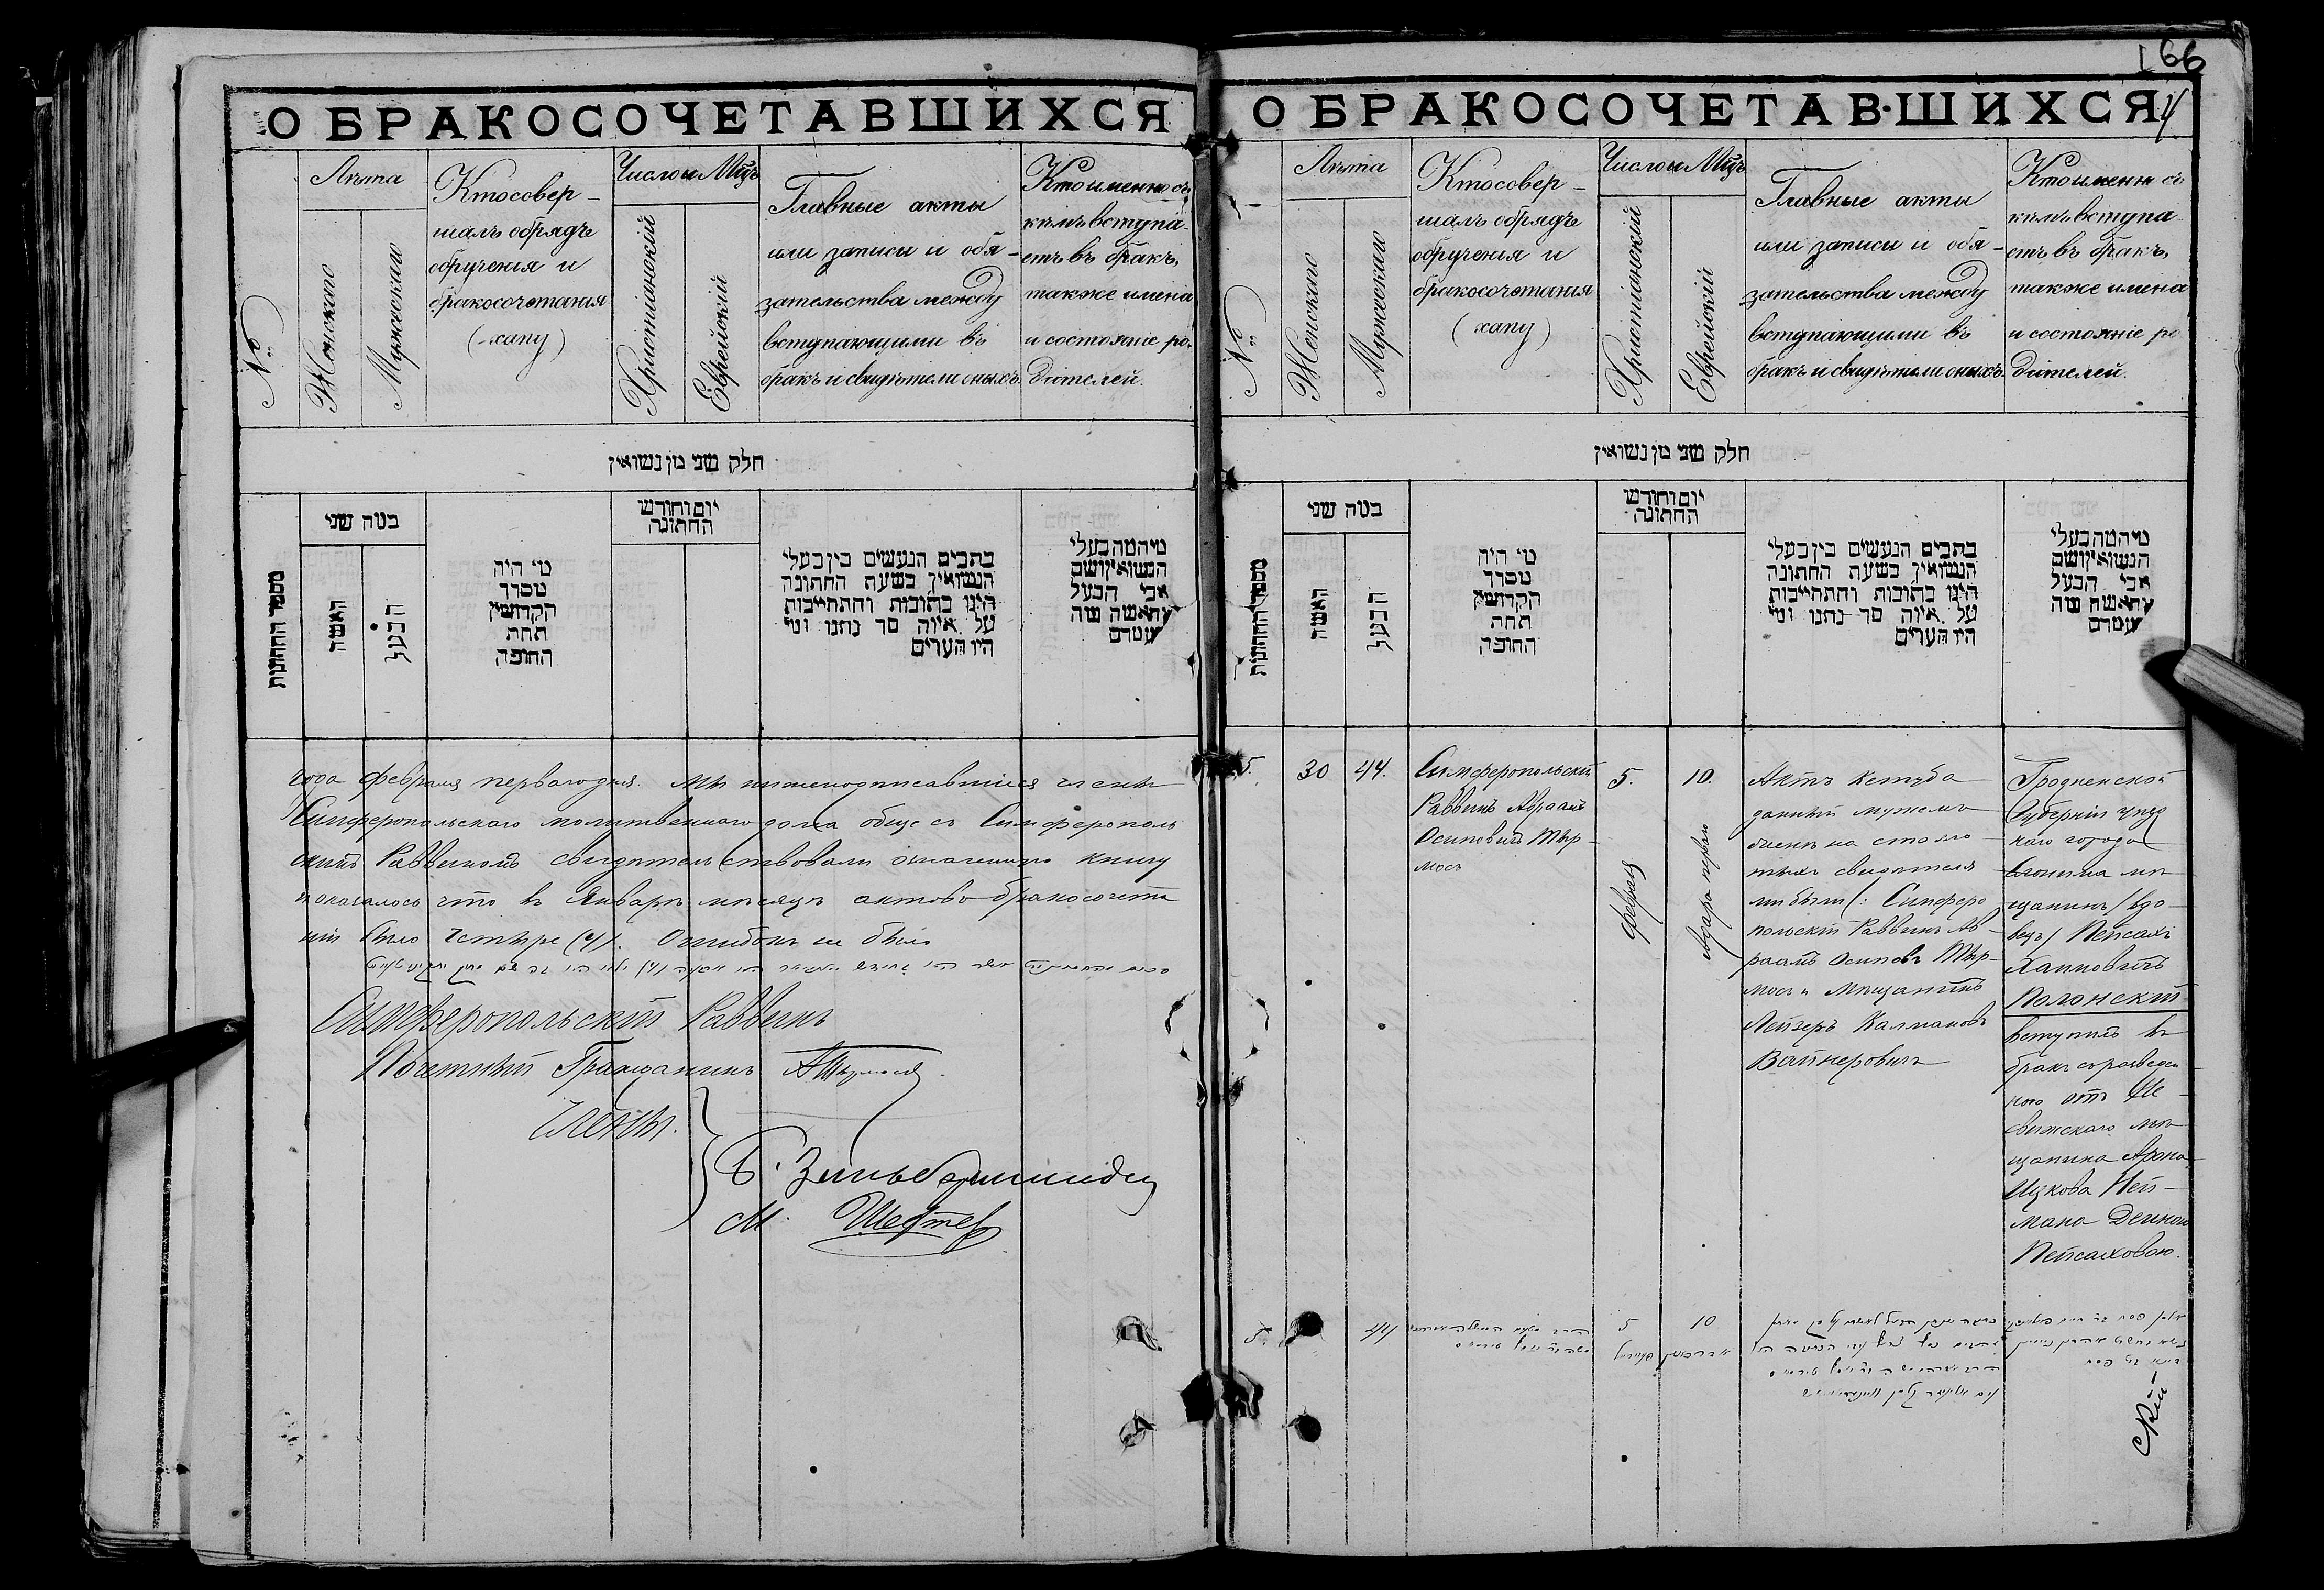 166
О БРАКОСОЧЕТАВШИХСЯ
№
Лѣта
Женскаго
Мужескаго
Кто совер-
шалъ обрядъ
обрученія и
бракосочетанія
(хапу)
Число и Мцъ
Христіанскій
Еврейскій
Главные акты
или записи и обя-
зательства между
вступающими въ
бракъ и свидѣтели оныхъ.
Кто именно съ
кѣмъ вступа-
етъ въ бракъ,
также имена
и состояніе ро-
дителей.
חלק שני מן נשואין
מספר החתונות
כמה שני
האשה
הבעל
מי היה
מסדר
הקדושין
תחת
החופה
יום וחודש
החתונה
כתבים הנעשים בין בעלי
הנשואין בשעת החתונה
היינו כתובות והתחייבות
על איזה סך נתנו ומי
היו העדים
מי המה בעלי
הנשואין ושם
אבי הבעל
והאשה ומה
מעמדם
года февраля перваго дня. Мы нижеподписавшіеся члены
Симферопольскаго молитвеннаго дома обще съ Симферополь
скимъ Раввиномъ свидѣтельствовали означенную книгу
и оказалось что въ Январѣ мѣсяцѣ актовъ бракосочета
ній было Четыре (4). Ошибокъ не было
Симферопольскій Раввинъ
Почетный Гражданинъ АТырмосъ
Члены.
Б. Зильбершмидъ
М. Шефтель
О БРАКОСОЧЕТАВШИХСЯ
4
№
Лѣта
Женскаго
Мужескаго
Кто совер-
шалъ обрядъ
обрученія и
бракосочетанія
(хапу)
Число и Мцъ
Христіанскій
Еврейскій
Главные акты
или записи и обя-
зательства между
вступающими въ
бракъ и свидѣтели оныхъ.
Кто именно съ
кѣмъ вступа-
етъ въ бракъ,
также имена
и состояніе ро
дителей.
חלק שני מן נשואין
מספר החתונות
כמה שני
האשה
הבעל
מי היה
מסדר
הקדושין
תחת
החופה
יום וחודש
החתונה
כתבים הנעשים בין בעלי
הנשואין בשעת החתונה
היינו כתובות והתחייבות
על איזה סך נתנו ומי
היו העדים
מי המה בעלי
הנשואין ושם
אבי הבעל
והאשה ומה
מעמדם
5.
30
44.
Симферопольскій
Раввинъ Авраамъ
Осиповичъ Тыр-
мосъ
5.
февраля
10.
Адаръ перваго
Актъ Кетуба
данный мужемъ
женѣ на сто зло
тыхъ свидѣтеля
ми были: Симферо
польскій Раввинъ Ав-
раамъ Осиповъ Тыр-
мосъ и Мѣщанинъ
Лейзеръ Калмановъ
Вайнеровичъ
Гродненской
Губерніи уѣзд
наго города
Слонима мѣ
щанинъ /вдо-
вецъ/ Пейсахъ
Хаимовичъ
Полонскій
вступилъ въ
бракъ съ разведен
ною отъ Не-
свижскаго мѣ
щанина Арона
Ицкова Ней-
мана Дейною
Пейсаховою.
5.
44
5
10
скій